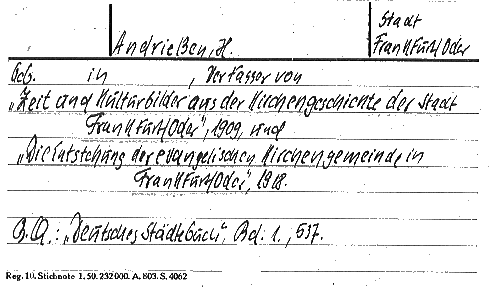 Stadt
Andrießen, H. Frankfurt/Oder
Geb. in , Verfasser von
„Zeit und Kulturbilder aus der Kirchengeschichte der Stadt
Frankfurt/Oder", 1909, und
„Die Entstehung der evangelischen Kirchengemeinde in
Frankfurt/Oder", 1918.
B.Q.: „Deutsches Städtebuch", Bd. 1., 537.
Reg. 10. Stichnote 1. 50. 232000. A. 803. S. 4062